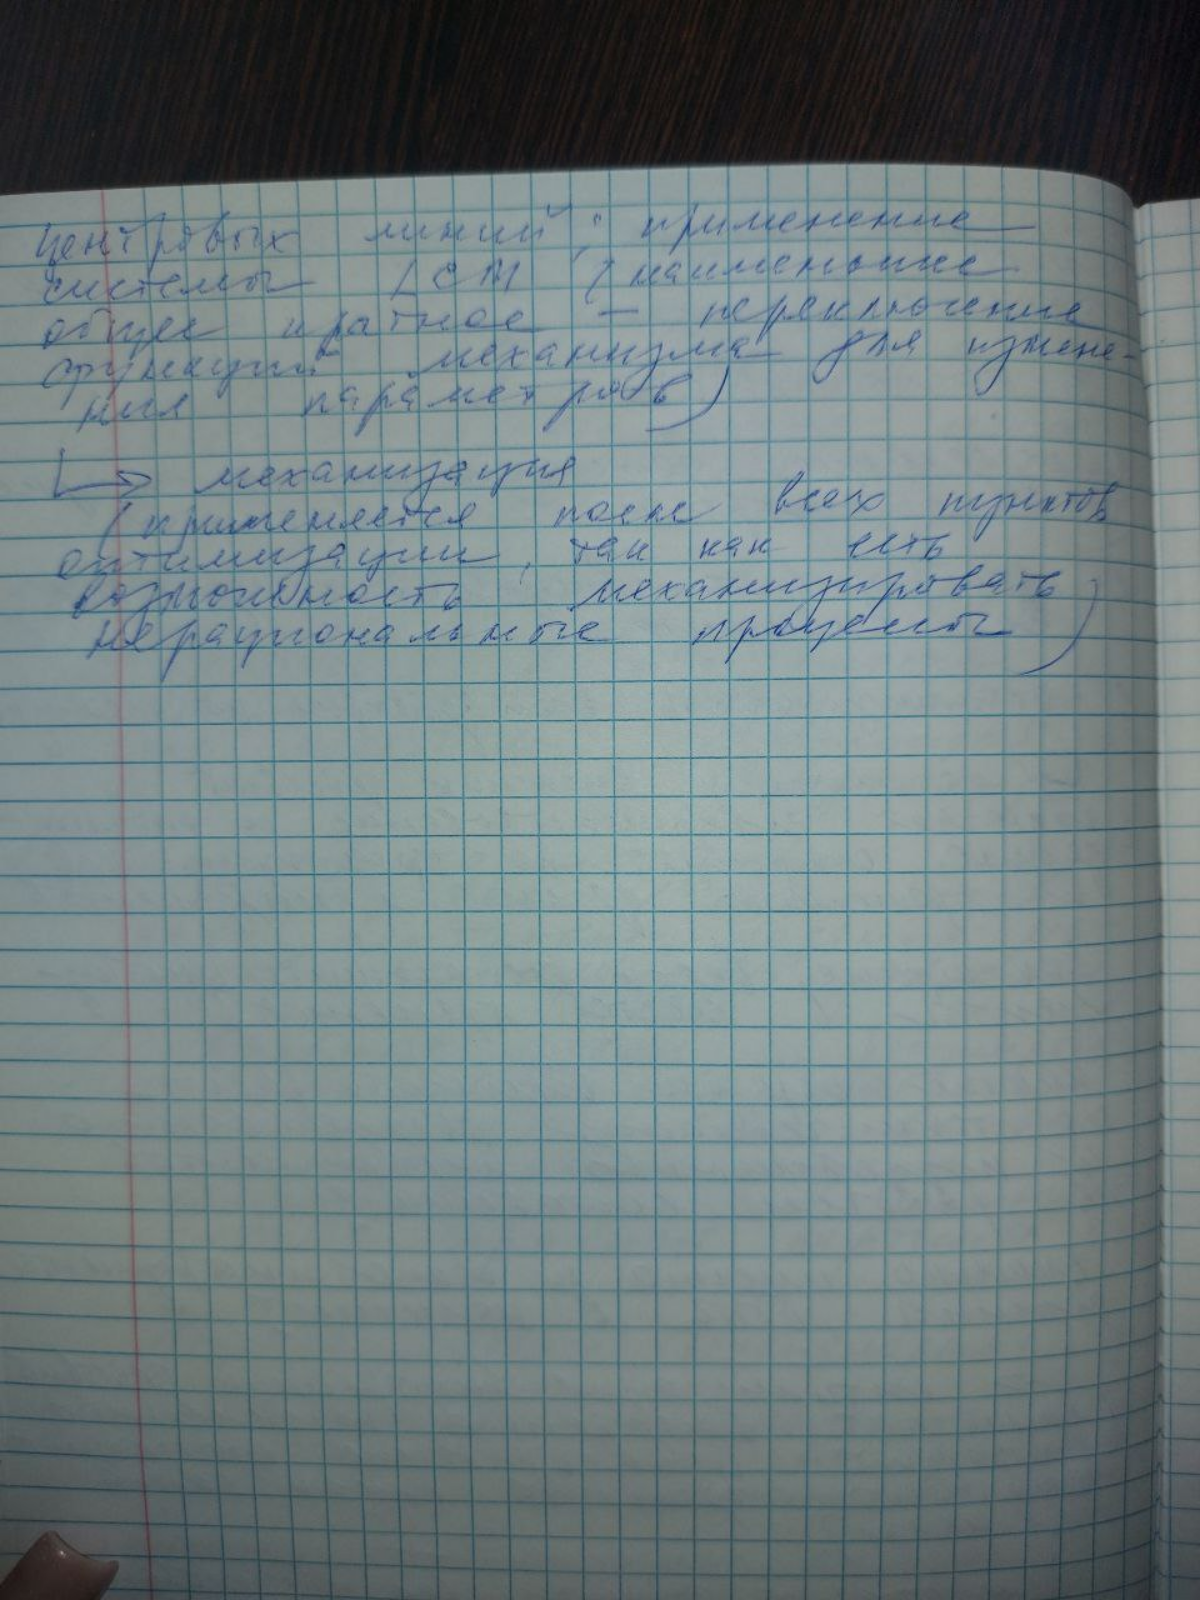 центровых линий; применение
системы LCM (наименьшее
общее кратное – переключение
функций механизма для измене-
ния параметров)
↳ механизация
(применяется после всех пунктов
оптимизации, так как есть
возможность механизировать
нерациональные процессы)